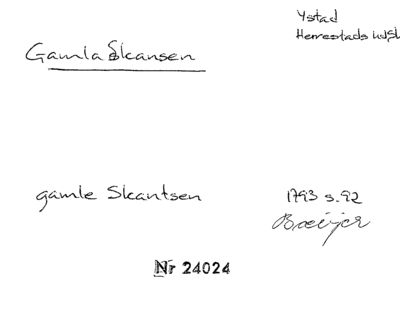 Ystad
Herrestads
Gamla Skansen
gamle Skantsen
1793 s. 92
Nr 24024